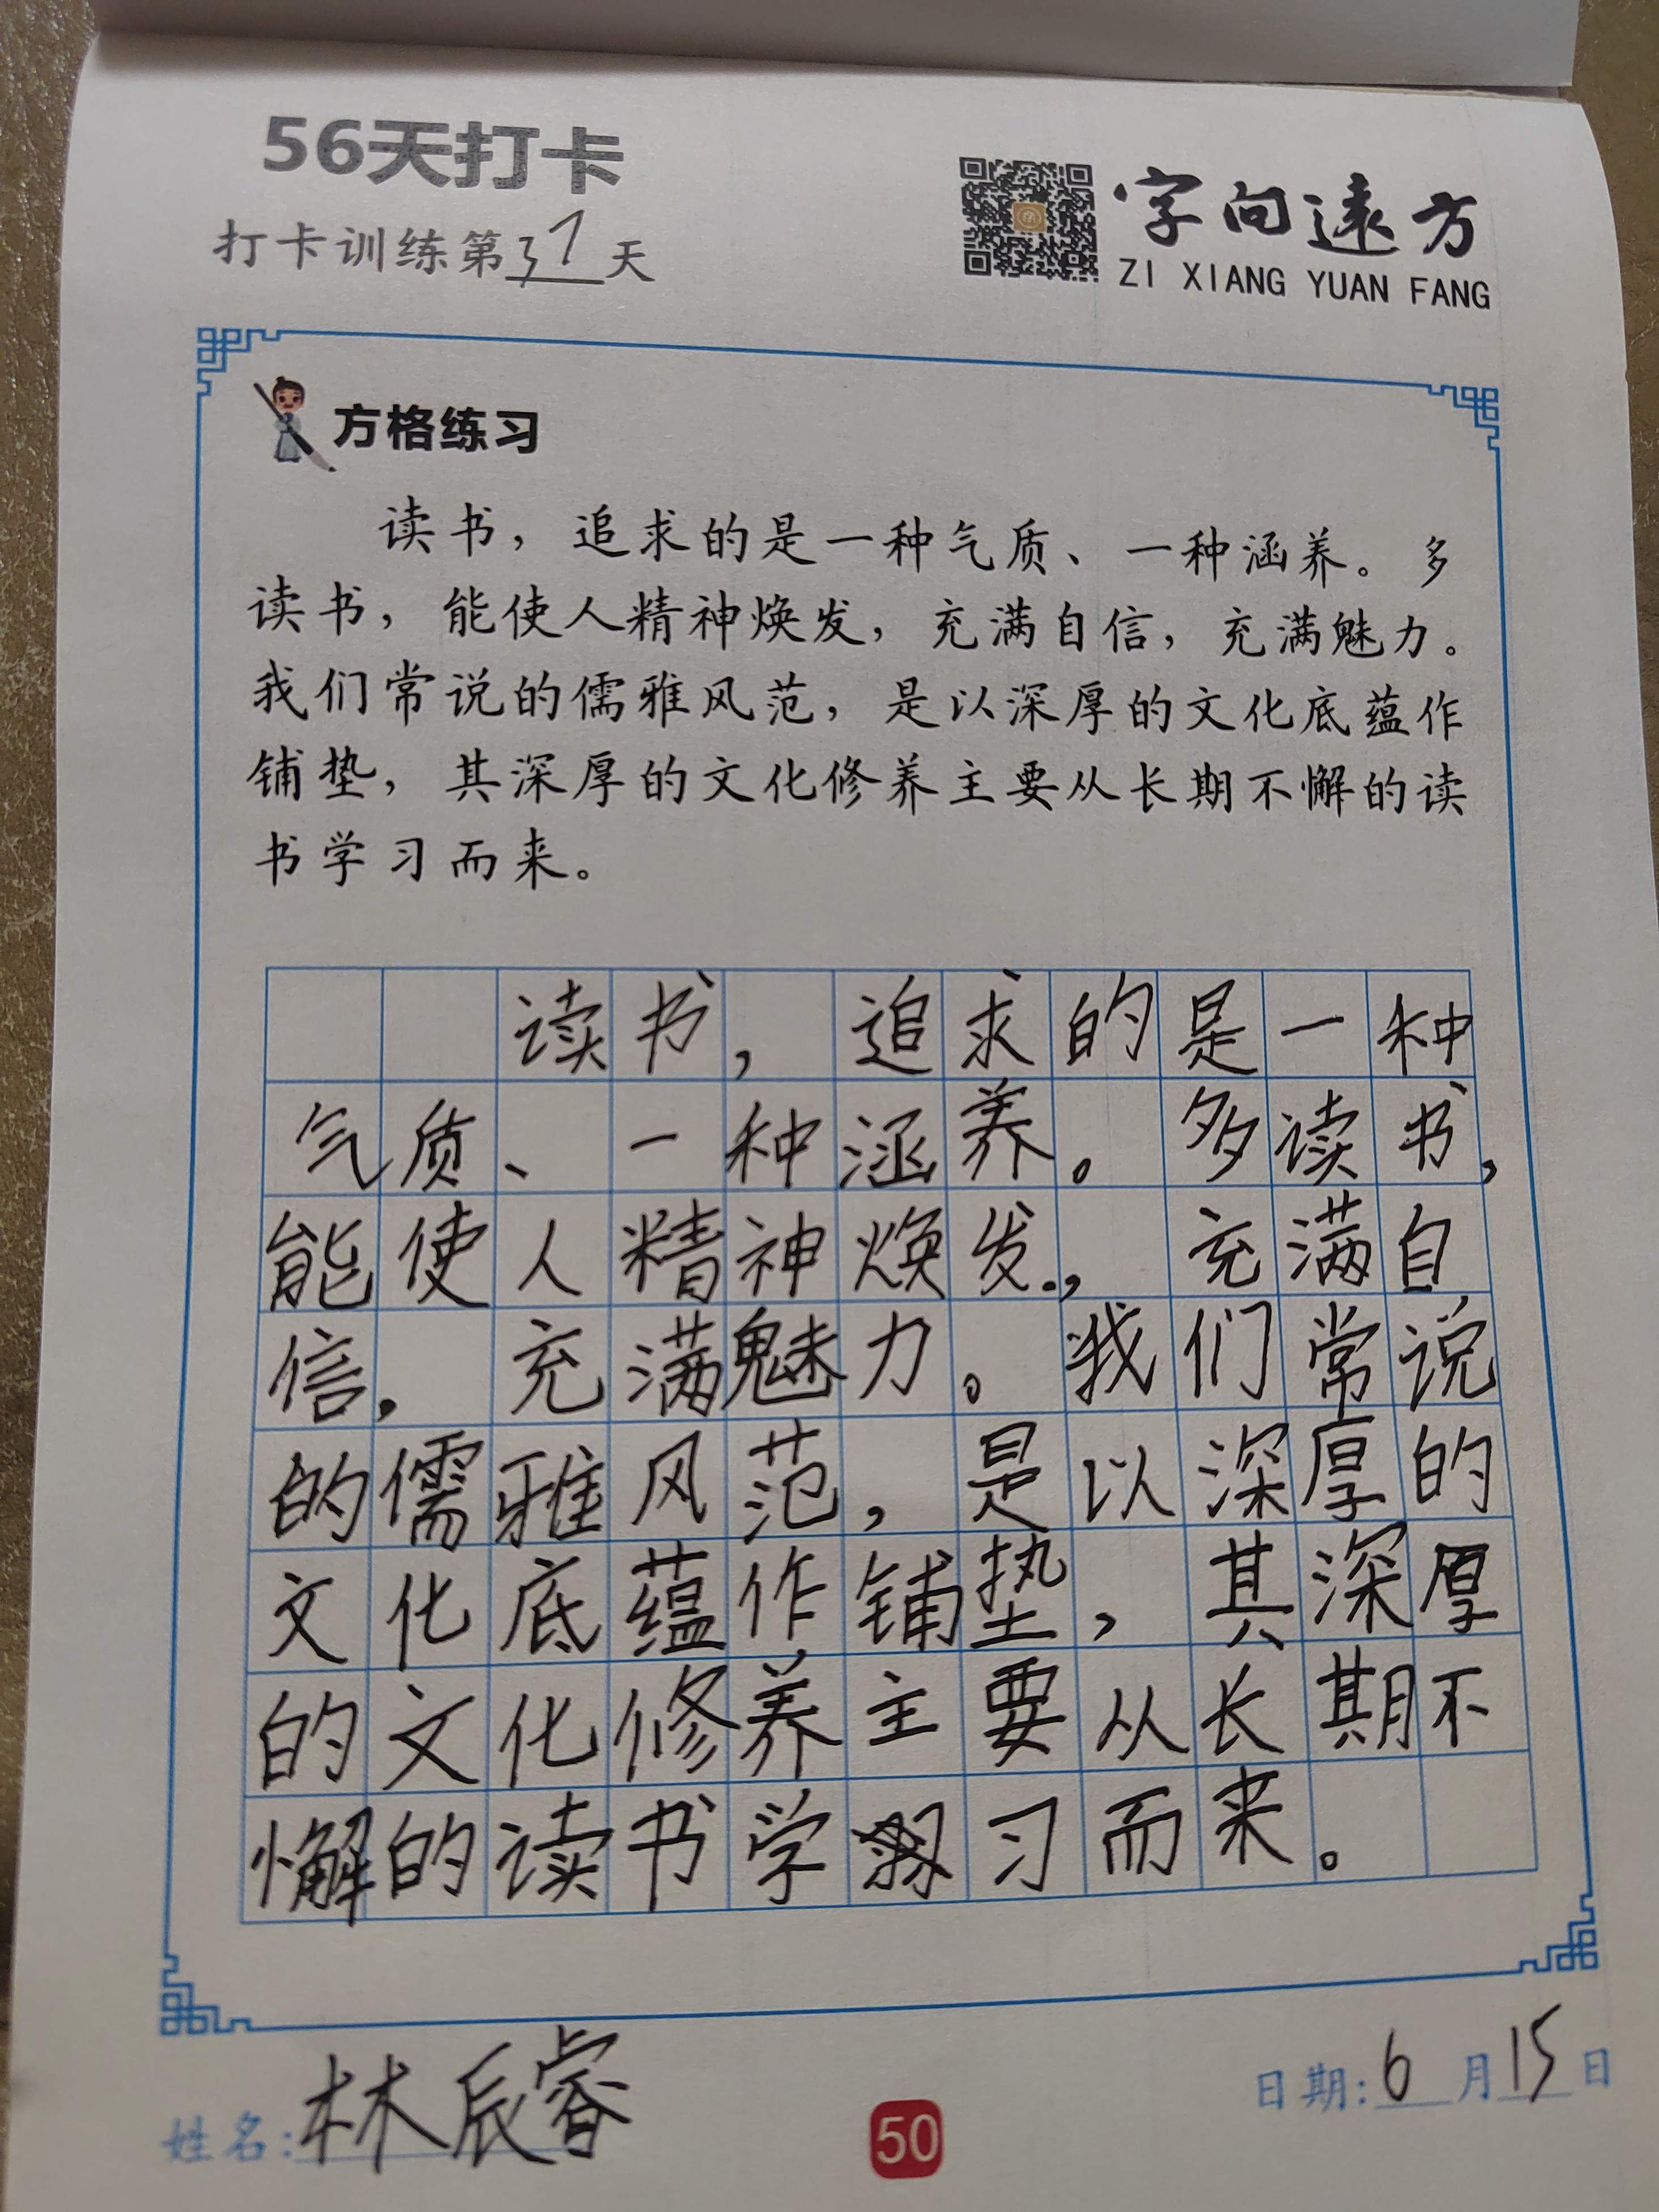 56天打卡
打卡训练第37天
字向远方
ZI XIANG YUAN FANG
方格练习
读书，追求的是一种气质、一种涵养。多
读书，能使人精神焕发，充满自信，充满魅力。
我们常说的儒雅风范，是以深厚的文化底蕴作
铺垫，其深厚的文化修养主要从长期不懈的读
书学习而来。
读书，追求的是一种
气质、一种涵养。多读书，
能使人精神焕发，充满自
信，充满魅力。我们常说
的儒雅风范，是以深厚的
文化底蕴作铺垫，其深厚
的文化修养主要从长期不
懈的读书学习而来。
姓名：林辰睿
50
日期：6月15日